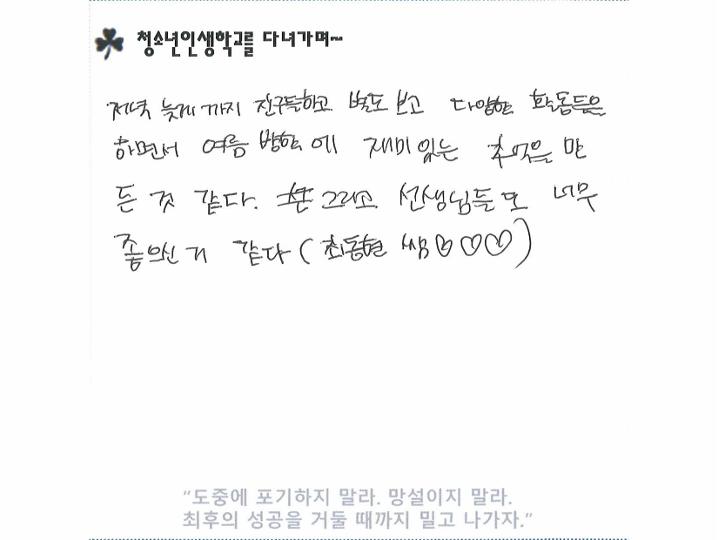 청소년인생학교를 다녀가며~
저녁 늦게 까지 친구들하고 별도 보고 다양한 활동들을
하면서 여름 방학에 재미있는 추억을 만
든 것 같다. 그리고 선생님들도 너무
좋으신 거 같다 (최동현 쌤♡♡♡)
"도중에 포기하지 말라. 망설이지 말라.
최후의 성공을 거둘 때까지 밀고 나가자."